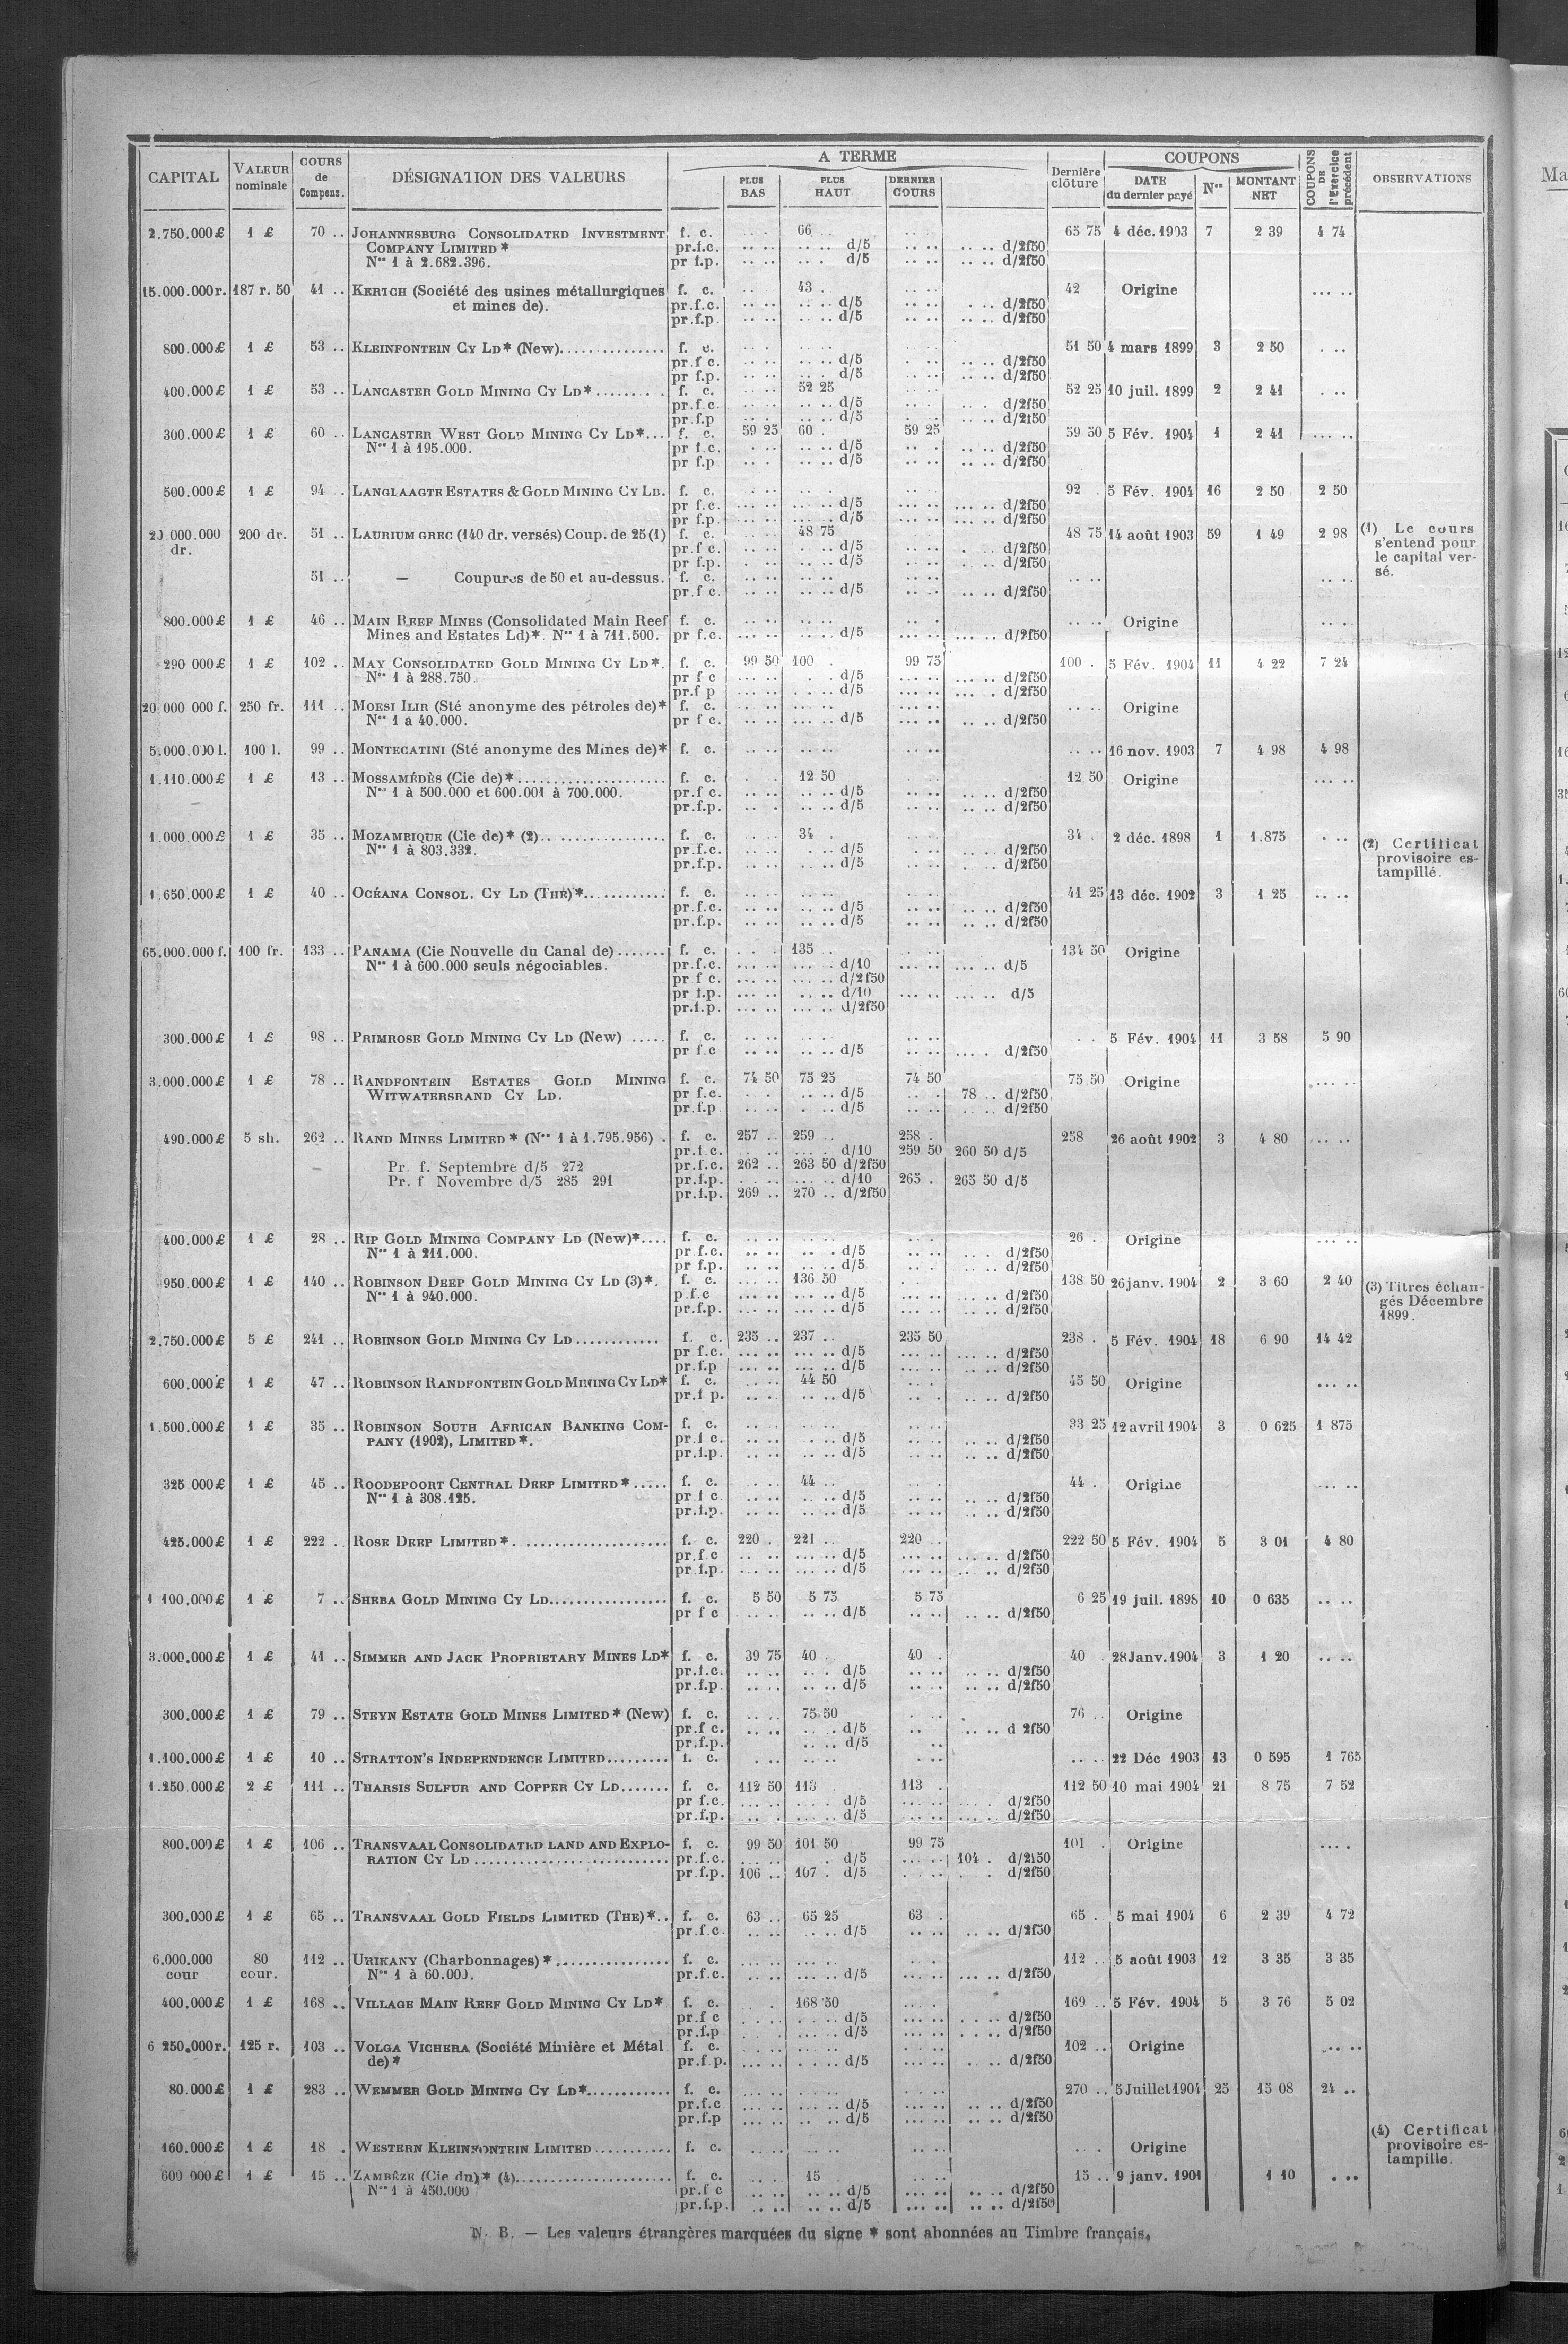 CAPITAL VALEUR nominale COURS de Compens. DÉSIGNATION DES VALEURS A TERME PLUS BAS PLUS HAUT DERNIER COURS Dernière clôture COUPONS DATE du dernier payé Nos MONTANT NET COUPONS DE l'Exercice précédent OBSERVATIONS
2.750.000£ 1 £ 70 .. JOHANNESBURG CONSOLIDATED INVESTMENT f. c. 66 65 75 4 déc. 1903 7 2 39 4 74
COMPANY LIMITED * pr.f.c. d/5 d/2f50
Nos 1 à 2.682.396. pr f.p. d/5 d/2f50
15.000.000r. 187 r. 50 41 .. KERTCH (Société des usines métallurgiques f. c. 43 42 Origine
et mines de). pr.f.c. d/5 d/2f50
pr.f.p. d/5 d/2f50
800.000£ 1 £ 53 .. KLEINFONTEIN CY LD* (New) f. c. 51 50 4 mars 1899 3 2 50
pr.f.c. d/5 d/2f50
pr f.p. d/5 d/2f50
400.000£ 1 £ 53 .. LANCASTER GOLD MINING CY LD* f. c. 52 25 52 25 10 juil. 1899 2 2 41
pr.f.c. d/5 d/2f50
pr.f.p d/5 d/2f50
300.000£ 1 £ 60 .. LANCASTER WEST GOLD MINING CY LD* f. c. 59 25 60 59 25 59 50 5 Fév. 1904 1 2 41
Nos 1 à 195.000. pr f.c. d/5 d/2f50
pr f.p d/5 d/2f50
500.000£ 1 £ 94 .. LANGLAAGTE ESTATES & GOLD MINING CY LD. f. c. 92 5 Fév. 1904 16 2 50 2 50
pr f.c. d/5 d/2f50
pr f.p. d/5 d/2f50
20 000.000 200 dr. 51 .. LAURIUM GREC (140 dr. versés) Coup. de 25 (1) f. c. 48 75 48 75 14 août 1903 59 1 49 2 98 (1) Le cours
dr. pr.f c. d/5 d/2f50 s'entend pour
pr f.p. d/5 d/2f50 le capital ver-
51 .. — Coupures de 50 et au-dessus. f. c. sé.
pr.f c. d/5 d/2f50
800.000£ 1 £ 46 .. MAIN REEF MINES (Consolidated Main Reef f. c. Origine
Mines and Estates Ld)* Nos 1 à 711.500. pr f.c. d/5 d/2f50
290 000£ 1 £ 102 .. MAY CONSOLIDATED GOLD MINING CY LD*. f. c. 99 50 100 99 75 100 . 5 Fév. 1904 11 4 22 7 24
Nos 1 à 288.750. pr f c d/5 d/2f50
pr.f p d/5 d/2f50
20 000 000 f. 250 fr. 111 .. MOESI ILIR (Sté anonyme des pétroles de)* f. c. Origine
Nos 1 à 40.000. pr f c. d/5 d/2f50
5.000.000 l. 100 l. 99 .. MONTECATINI (Sté anonyme des Mines de)* f. c. 16 nov. 1903 7 4 98 4 98
1.110.000£ 1 £ 13 .. MOSSAMÉDÈS (Cie de)* f. c. 12 50 12 50 Origine
Nos 1 à 500.000 et 600.001 à 700.000. pr.f c. d/5 d/2f50
pr.f.p. d/5 d/2f50
1.000.000£ 1 £ 35 .. MOZAMBIQUE (Cie de)* (2) f. c. 34 34 . 2 déc. 1898 1 1.875 (2) Certificat
Nos 1 à 803.332. pr.f.c. d/5 d/2f50 provisoire es-
pr.f.p. d/5 d/2f50 tampillé.
1 650.000£ 1 £ 40 .. OCÉANA CONSOL. CY LD (THE)* f. c. 41 25 13 déc. 1902 3 1 25
pr.f.c. d/5 d/2f50
pr.f.p. d/5 d/2f50
65.000.000 f. 100 fr. 133 .. PANAMA (Cie Nouvelle du Canal de) f. c. 135 134 50 Origine
Nos 1 à 600.000 seuls négociables. pr.f.c. d/10 d/5
pr f c. d/2f50
pr f.p. d/10 d/5
pr.f.p. d/2f50
300.000£ 1 £ 98 .. PRIMROSE GOLD MINING CY LD (New) f. c. 5 Fév. 1904 11 3 58 5 90
pr f.c d/5 d/2f50
3.000.000£ 1 £ 78 .. RANDFONTEIN ESTATES GOLD MINING f. c. 74 50 75 25 74 50 75 50 Origine
WITWATERSRAND CY LD. pr f.c. d/5 78 .. d/2f50
pr.f.p d/5 d/2f50
490.000£ 5 sh. 262 .. RAND MINES LIMITED * (Nos 1 à 1.795.956) . f. c. 257 .. 259 .. 258 . 258 26 août 1902 3 4 80
pr.f.c. d/10 259 50 260 50 d/5
Pr. f. Septembre d/5 272 pr.f.c. 262 .. 263 50 d/2f50
Pr. f Novembre d/5 285 291 pr.f.p. d/10 265 . 265 50 d/5
pr.f.p. 269 .. 270 .. d/2f50
400.000£ 1 £ 28 .. RIP GOLD MINING COMPANY LD (New)* f. c. 26 . Origine
Nos 1 à 211.000. pr f.c. d/5 d/2f50
pr f.p. d/5 d/2f50
950.000£ 1 £ 140 .. ROBINSON DEEP GOLD MINING CY LD (3)*. f. c. 136 50 138 50 26 janv. 1904 2 3 60 2 40 (3) Titres échan-
Nos 1 à 940.000. p.f.c d/5 d/2f50 gés Décembre
pr.f.p. d/5 d/2f50 1899.
2.750.000£ 5 £ 241 .. ROBINSON GOLD MINING CY LD f. c. 235 .. 237 .. 235 50 238 . 5 Fév. 1904 18 6 90 14 42
pr f.c. d/5 d/2f50
pr.f.p d/5 d/2f50
600.000£ 1 £ 47 .. ROBINSON RANDFONTEIN GOLD MINING CY LD* f. c. 44 50 45 50 Origine
pr.f p. d/5 d/2f50
1.500.000£ 1 £ 35 .. ROBINSON SOUTH AFRICAN BANKING COM- f. c. 33 25 12 avril 1904 3 0 625 1 875
PANY (1902), LIMITED*. pr.f c. d/5 d/2f50
pr.f.p. d/5 d/2f50
325 000£ 1 £ 45 .. ROODEPOORT CENTRAL DEEP LIMITED* f. c. 44 44 . Origine
Nos 1 à 308.125. pr f c d/5 d/2f50
pr.f.p. d/5 d/2f50
425.000£ 1 £ 222 .. ROSE DEEP LIMITED* f. c. 220 . 221 .. 220 .. 222 50 5 Fév. 1904 5 3 01 4 80
pr.f c d/5 d/2f50
pr.f.p. d/5 d/2f50
1 100.000£ 1 £ 7 .. SHEBA GOLD MINING CY LD f. c. 5 50 5 75 5 75 6 25 19 juil. 1898 10 0 635
pr f c d/5 d/2f50
3.000.000£ 1 £ 41 .. SIMMER AND JACK PROPRIETARY MINES LD* f. c. 39 75 40 40 . 40 . 28 Janv. 1904 3 1 20
pr.f.c. d/5 d/2f50
pr.f.p d/5 d/2f50
300.000£ 1 £ 79 .. STEYN ESTATE GOLD MINES LIMITED* (New) f. c. 75.50 76 .. Origine
pr.f c. d/5 d 2f50
pr.f.p. d/5
1.100.000£ 1 £ 10 .. STRATTON'S INDEPENDENCE LIMITED f. c. 22 Déc 1903 13 0 595 1 765
1.250 000£ 2 £ 111 .. THARSIS SULFUR AND COPPER CY LD f. c. 112 50 113 113 . 112 50 10 mai 1904 21 8 75 7 52
pr f.c. d/5 d/2f50
pr.f.p. d/5 d/2f50
800.000£ 1 £ 106 .. TRANSVAAL CONSOLIDATED LAND AND EXPLO- f. c. 99 50 101 50 99 75 101 . Origine
RATION CY LD pr.f.c. d/5 104 . d/2f50
pr.f.p. 106 .. 107 . d/5 d/2f50
300.000£ 1 £ 65 .. TRANSVAAL GOLD FIELDS LIMITED (THE)* f. c. 63 .. 65 25 63 . 65 . 5 mai 1904 6 2 39 4 72
pr.f.c. d/5 d/2f50
6.000.000 80 112 .. URIKANY (Charbonnages) * f. c. 112 .. 5 août 1903 12 3 35 3 35
cour cour. Nos 1 à 60.000. pr.f.c. d/5 d/2f50
400.000£ 1 £ 168 .. VILLAGE MAIN REEF GOLD MINING CY LD* f. c. 168 50 169 .. 5 Fév. 1904 5 3 76 5 02
pr.f c d/5 d/2f50
pr.f.p d/5 d/2f50
6 250.000r. 125 r. 103 .. VOLGA VICHERA (Société Minière et Métal f. c. 102 .. Origine
de)* pr.f.p. d/5 d/2f50
80.000£ 1 £ 283 .. WEMMER GOLD MINING CY LD* f. c. 270 .. 5 Juillet 1904 25 15 08 24 ..
pr.f.c d/5 d/2f50
pr.f.p d/5 d/2f50
160.000£ 1 £ 18 . WESTERN KLEINFONTEIN LIMITED f. c. Origine (4) Certificat
provisoire es-
tampille.
600 000£ 1 £ 15 .. ZAMBÈZE (Cie du)* (4) f. c. 15 15 .. 9 janv. 1901 1 10
Nos 1 à 450.000 pr.f c d/5 d/2f50
pr.f.p. d/5 d/2f50
N. B. — Les valeurs étrangères marquées du signe * sont abonnées au Timbre français.
Ma